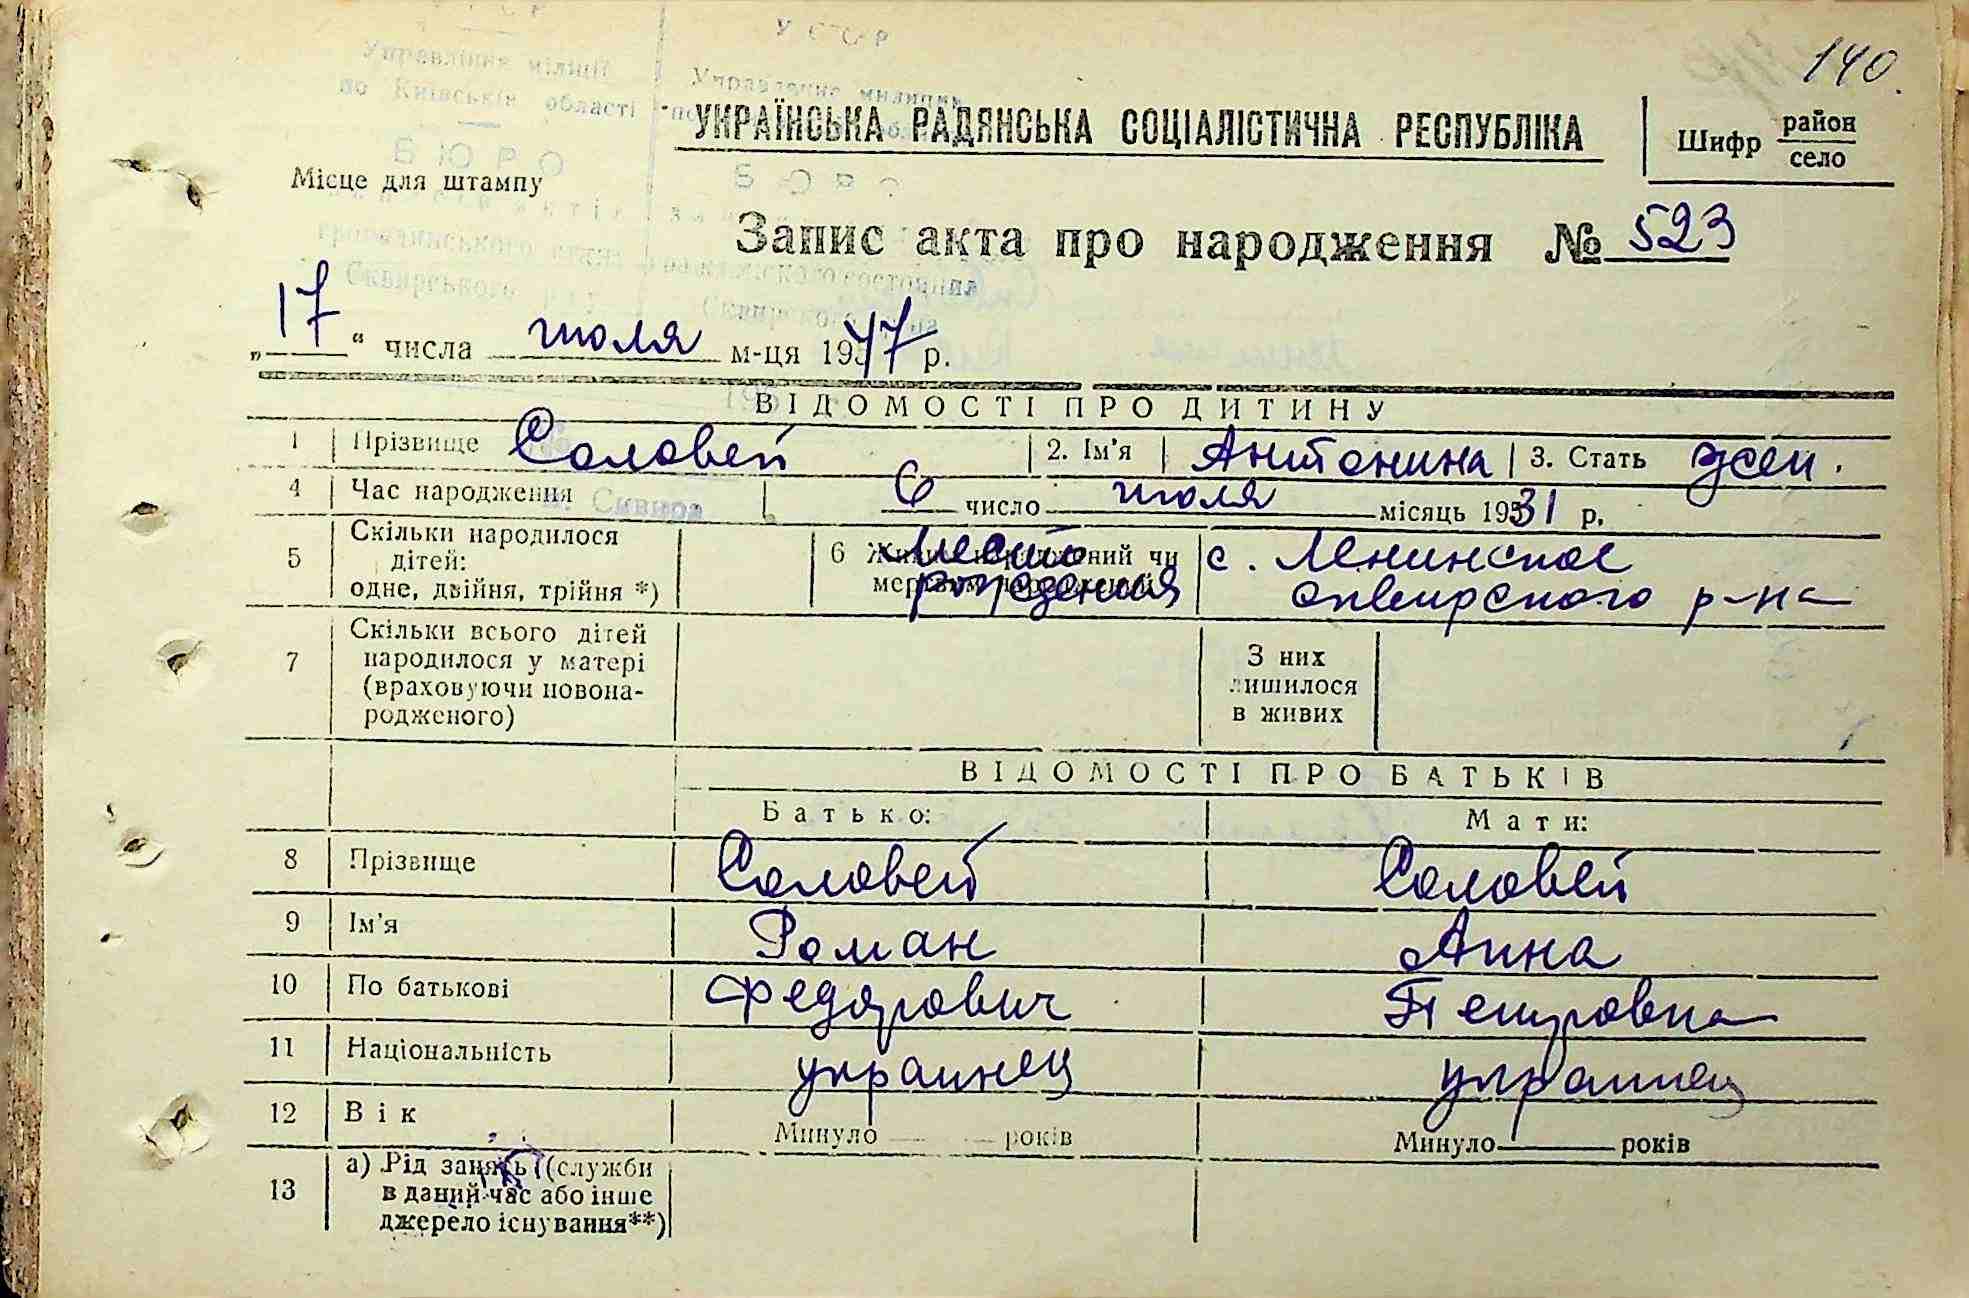 140.
УССР
Управління міліції
Управление милиции
по Київській області
УКРАЇНСЬКА РАДЯНСЬКА СОЦІАЛІСТИЧНА РЕСПУБЛІКА
Шифр район
село
БЮРО
БЮРО
Місце для штампу
Запис акта про народження № 523
громадянського
гражданского состояния
Сквирського
Сквирского
„17“ числа июля м-ця 1947 р.
ВІДОМОСТІ ПРО ДИТИНУ
1 Прізвище Соловей 2. Ім'я Антонина 3. Стать жен.
4 Час народження 6 число июля місяць 1931 р.
м. Сквира
5 Скільки народилося дітей: одне, двійня, трійня *)
6 Живим народжений чи мертвим народжений
место рождения
с. Ленинское
Сквирского р-на
7 Скільки всього дітей народилося у матері (враховуючи новонародженого)
З них лишилося в живих
ВІДОМОСТІ ПРО БАТЬКІВ
Батько: Мати:
8 Прізвище Соловей Соловей
9 Ім'я Роман Анна
10 По батькові Федорович Петровна
11 Національність украинец украинец
12 Вік Минуло років Минуло років
13 а) Рід занять (служби
в даний час або інше
джерело існування**)